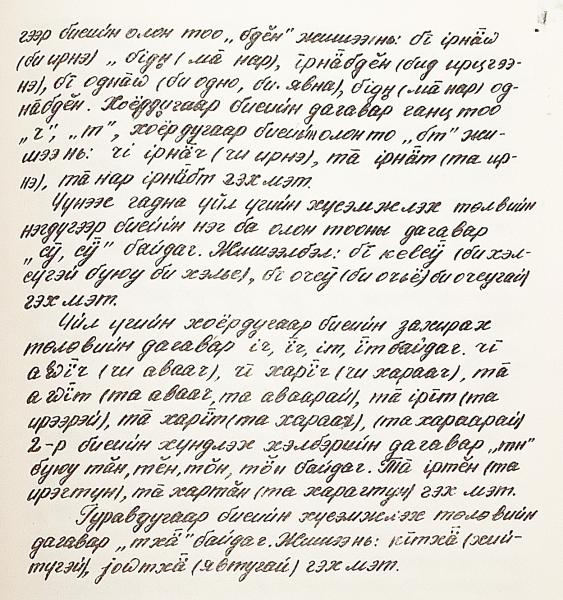 гээр биеийн олон тоо „ бдĕн" жишээ нь: бі̄ ірнӓw
(би ирнэ) „ бідн̥ ( ма̄ нар), ірнӓбдĕн (бид ирцгээ-
нэ), бі̄ однӓw (би одно, би. явна), бідн̥ (ма̄ нар) од-
нӓбдĕн. Хоёрдугаар биеийн дагавар ганц тоо
„ ч", „ т", хоёрдугаар биеийн олон то „ бт" жи-
шээ нь: чі ірнӓч (чи ирнэ), та̄ ірнӓт (та ир-
нэ), та̄ нар ірнӓбт гэх мэт.
Үүнээс гадна үйл үгийн хүсэмжлэх төлвийн
нэгдүгээр биеийн нэг ба олон тооны дагавар
„ сӯ, сӱ̄ " байдаг. Жишээлбэл: бі̄ келсӱ̄ (би хэл-
сүгэй буюу би хэлье), бі̄ очсӯ (би очьё) би очсугай)
гэх мэт.
Үйл үгийн хоёрдугаар биеийн захирах
төлөвийн дагавар іч, ı̄ч, іт, ı̄т байдаг. чı̄
аwı̄ч (чи аваач), чı̄ харı̄ч (чи хараач), та̄
аwı̄т (та аваач, та аваарай), та̄ ірı̄т (та
ирээрэй), та̄ харı̄т (та хараач), (та хараарай)
2-р биеийн хүндлэх хэлбэрийн дагавар „тн"
буюу тӑн, тĕн, тŏн, тӧн байдаг. Та̄ іртĕн (та
ирэгтүн), та̄ хартӑн (та харагтун) гэх мэт.
Гуравдугаар биеийн хүсэмжлэх төлөвийн
дагавар „ тхӓ" байдаг. Жишээ нь: кı̄тхӓ (хий-
түгэй), jowтхӓ (явтугай) гэх мэт.